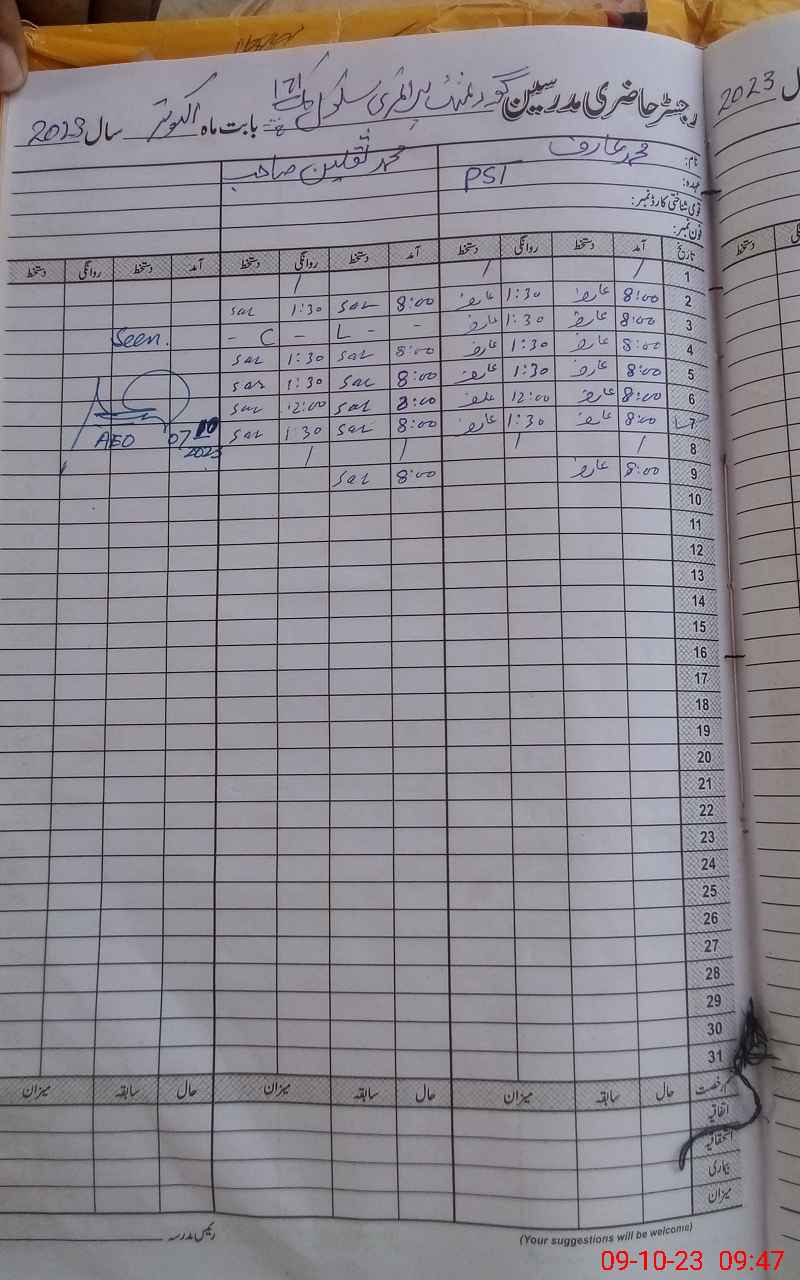 رجسٹر حاضری مدرسین گورنمنٹ پرائمری سکول چک 171 بابت ماہ اکتوبر سال 2023
2023
نام: محمد عارف محمد ثقلین صاحب
عہدہ: PST
قومی شناختی کارڈ نمبر:
فون نمبر:
تاریخ آمد دستخط روانگی دستخط آمد دستخط روانگی دستخط آمد دستخط روانگی دستخط
1 / / /
2 8:00 عارف 1:30 عارف 8:00 Saq 1:30 Saq
3 8:00 عارف 1:30 عارف - - L - C -
Seen.
4 8:00 عارف 1:30 عارف 8:00 Saq 1:30 Saq
5 8:00 عارف 1:30 عارف 8:00 Saq 1:30 Saq
6 8:00 عارف 12:00 عارف 8:00 Saq 12:00 Saq
7 8:00 عارف 1:30 عارف 8:00 Saq 1:30 Saq
AEO 07 10 2023
8 / / / /
9 8:00 عارف 8:00 Saq
10
11
12
13
14
15
16
17
18
19
20
21
22
23
24
25
26
27
28
29
30
31
رخصت حال سابقہ میزان حال سابقہ میزان حال سابقہ میزان
اتفاقیہ
استحقاقیہ
بیماری
میزان
رئیس مدرسہ
(Your suggestions will be welcome)
09-10-23 09:47